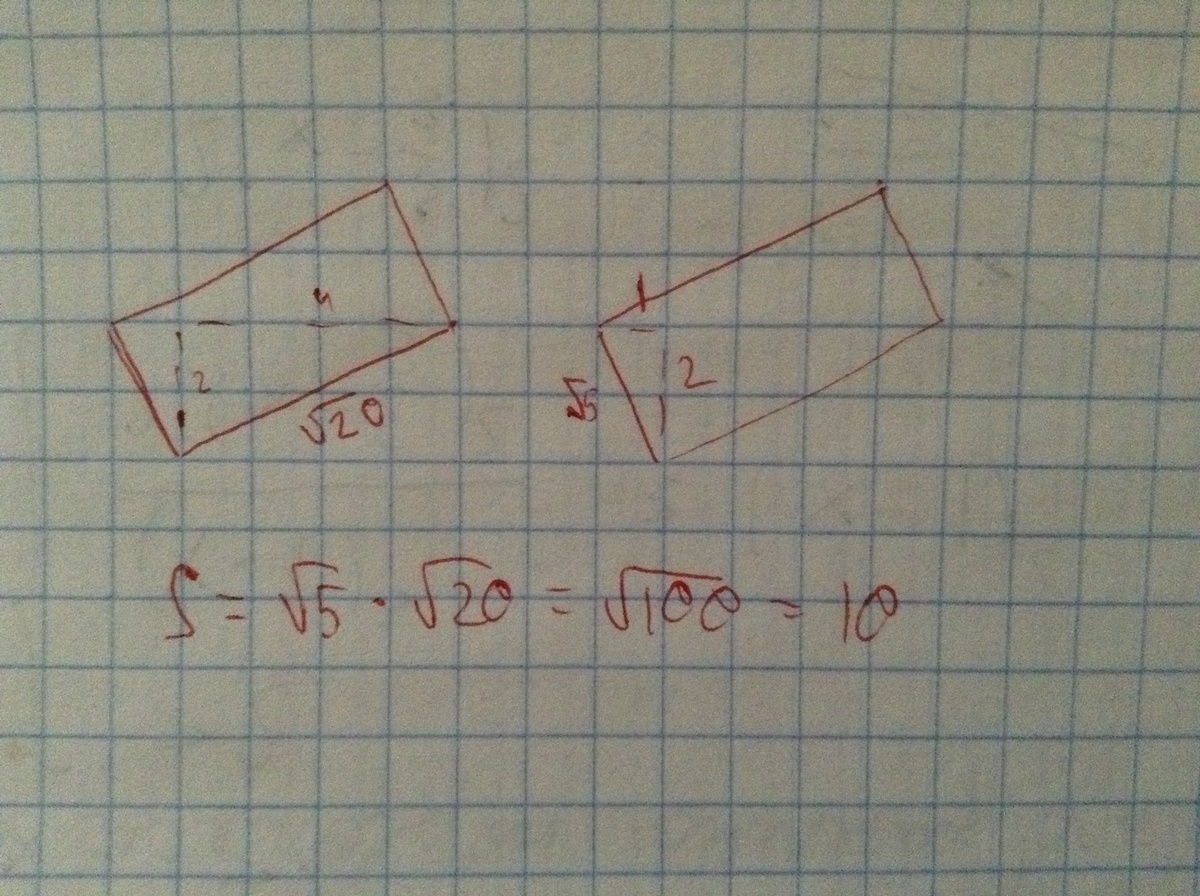 4
2
√20
1
√5
2
S = √5 · √20 = √100 = 10